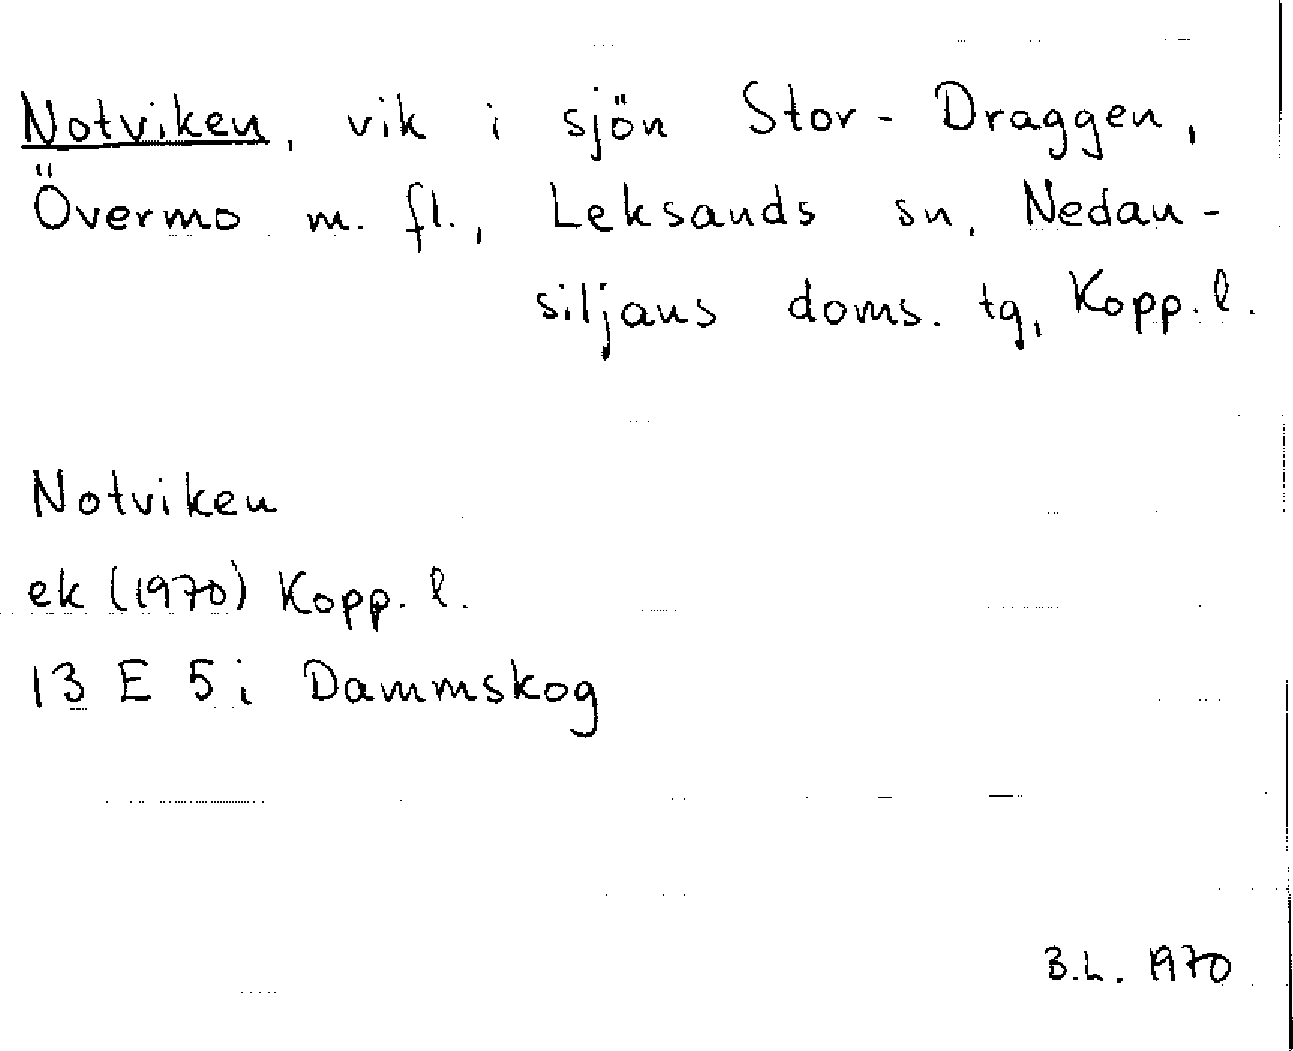 Notviken, vik i sjön Stor-Draggen,
Övermo m. fl., Leksands sn, Nedan-
siljans doms. tg, Kopp. l.
Notviken
ek (1970) Kopp. l.
13 E 5 i Dammskog
B.L. 1970